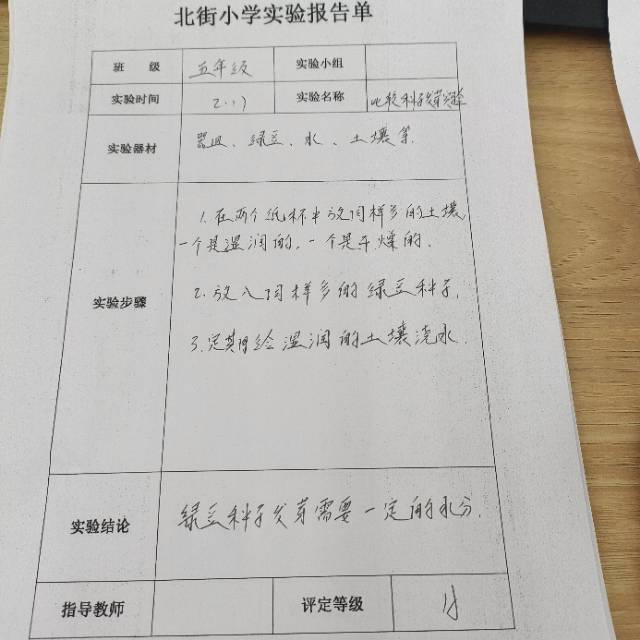 北街小学实验报告单
班 级 五年级 实验小组
实验时间 2.17 实验名称 比较种子发芽实验
实验器材 器皿、绿豆、水、土壤等.
1.在两个纸杯中放同样多的土壤,
一个是湿润的,一个是干燥的.
2.放入同样多的绿豆种子.
实验步骤
3.定期给湿润的土壤浇水.
实验结论 绿豆种子发芽需要一定的水分.
指导教师 评定等级